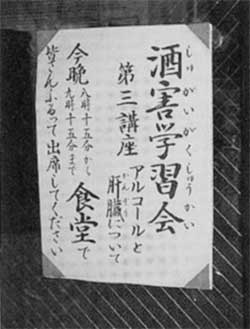 酒害学習会
しゅがいがくしゅうかい
第三講座
アルコールと
肝臓について
かんぞう
今晩
八時十五分から
九時十五分まで
食堂で
皆さんふるって出席してください